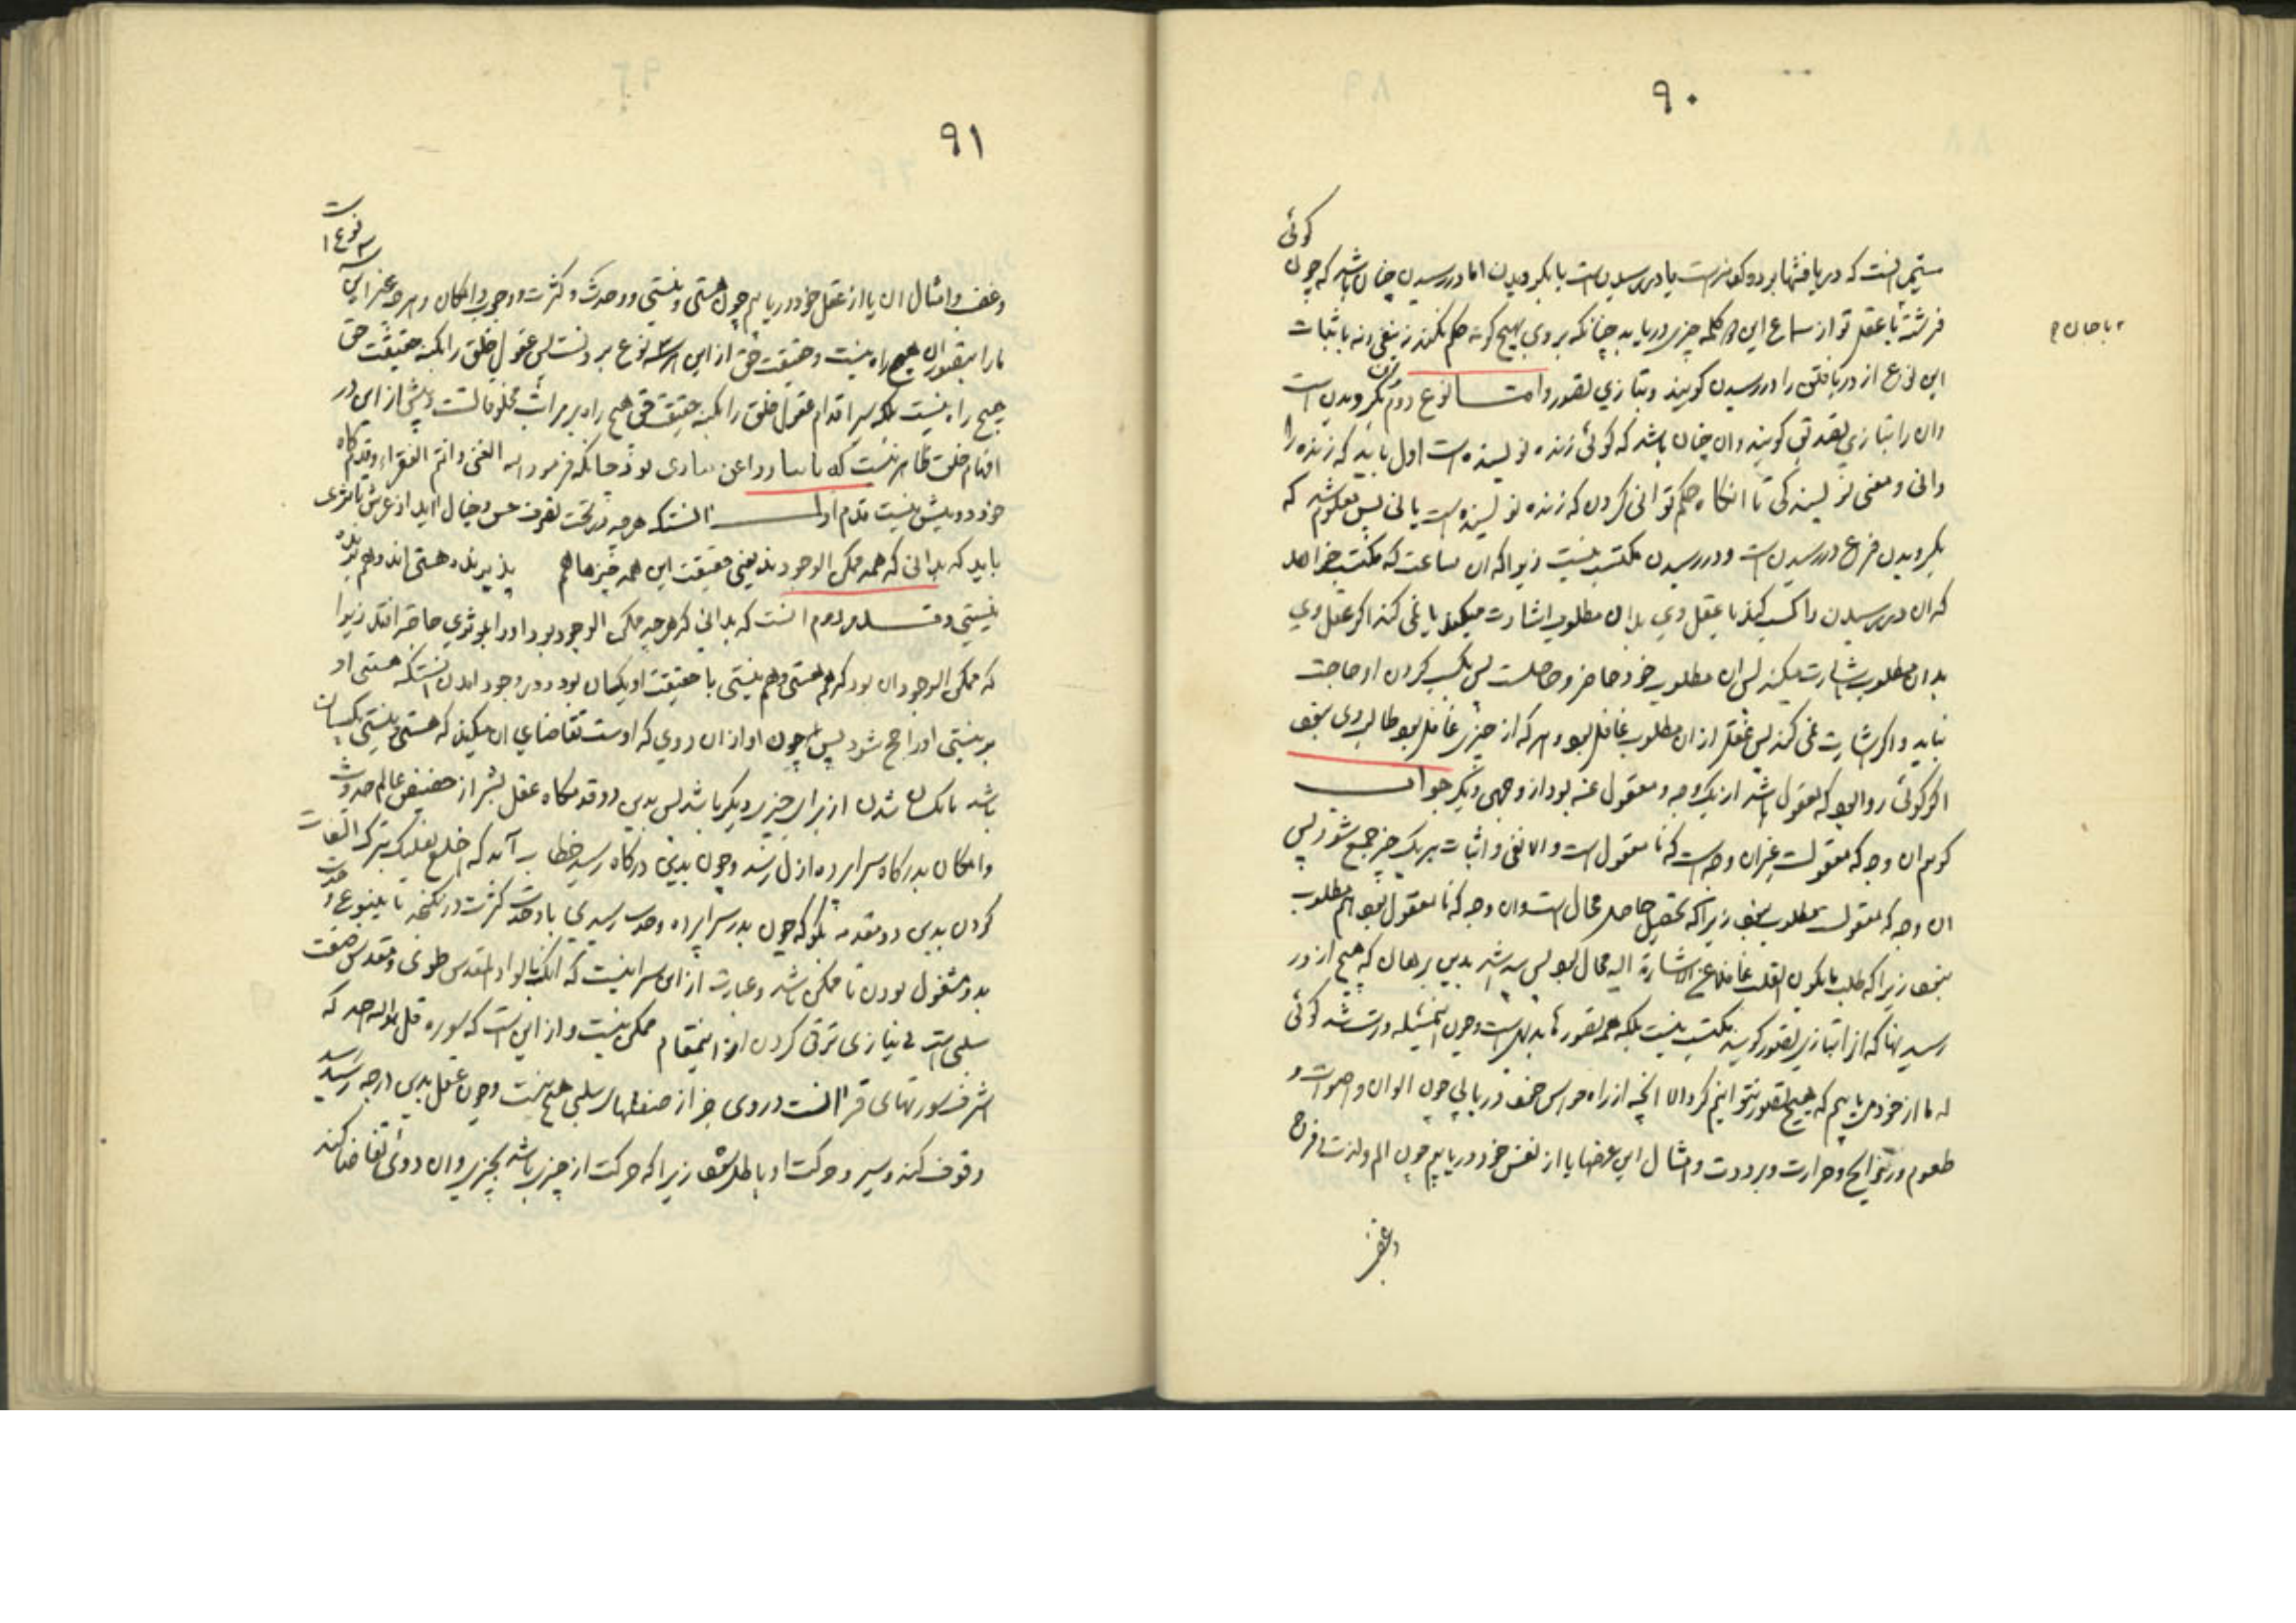 ۹۰
کوئی
که دریافتها بر دو کونه است یا در رسیدن است یا بکرویدن اما در رسیدن چنان باشد که چون
فرشته یا عقل تو از سماع این کلمه چیزی دریابد چنانکه بر وی بهیچ کونه حکم نکند نه بنفی و نه باثبات
این نوع از دریافتن را در رسیدن کویند و بتازی تصور و اما نوع دوم بکرویدن است
وان را بتازی تصدیق کویند وان چنان باشد که کوئی زنده نویسنده است اول باید که زنده را
دانی و معنی نویسندکی تا انکاه حکم توانی کردن که زنده نویسنده است یا نی پس معلوم شد که
بکرویدن فرع در رسیدن است و در رسیدن مکتسب نیست زیرا که ان ساعت که مکتسب خواهد
که ان در رسیدن را کسب کند یا عقل وی بدان مطلوب اشارت میکند یا نمی کند اکر عقل وی
بدان مطلوب اشارت میکند پس ان مطلوب خود حاضر و حاصلست پس بکسب کردن او حاجت
نیاید و اکر اشارت نمی کند پس عقلش از ان مطلوب غافل بود و هر که از چیزی غافل بود طالب وی نبود
اکر کوئی روا بود که معقول باشد از یک وجه و معقول عنه بود از وجهی دیکر جواب
کویم ان وجه که معقولست غیر ان وجه است که نا معقول است و الا نفی و اثبات بر یک چیز جمع شود پس
ان وجه که معقولست مطلوب نبود زیرا که تحصیل حاصل محال است وان وجه که نا معقول بود هم مطلوب
نبود زیرا که طلب ما یکون القلب غافلا عن الاشارة الیه محال بود پس درست شد بدین برهان که هیچ از در
رسیدنها که انرا بتازی تصور کویند مکتسب نیست بلکه همه تصورها بدیهیست و چون این مسئله درست شد کوئی
که ما از خود می یابیم که هیچ تصور نتوانیم کرد الا انچه از راه حواس خمس دریابیم چون الوان و اصوات و
طعوم و روایح و حرارت و برودت و امثال این عرضها یا از نفس خود دریابیم چون الم و لذت و فرح
وغضب
۹۱
وغضب و امثال ان یا از عقل خود دریابیم چون هستی و نیستی و وحدت و کثرت و وجوب و امکان و هر چه غیر این
سه نوع است
ما را بتصور ان هیچ راه نیست و حقیقت حق از این هر سه نوع بر ونست پس عقول خلق را بکنه حقیقت حق
هیچ راه نیست بلکه سیر اقدام عقول خلق را بکنه حقیقت حق هیچ راه بر مراتب مخلوقاتست و بیش از این در
افهام خلق ظاهر نیست که چنانکه فرمود الله الغنی وانتم الفقراء و قدمکاه
خود دو بیش نیست قدم اول انست که هر چه در تحت تصرف حس و خیال اید از عرش تا بثری
باید که بدانی که همه ممکن الوجودند یعنی حقیقت این همه چیزها هم پذیرنده هستی اند و هم پذیرنده
نیستی و قدم دوم انست که بدانی که هر چه ممکن الوجود بود او را بمؤثری حاجة افتد زیرا
که ممکن الوجود ان بود که هم هستی و هم نیستی با حقیقت او یکسان بود و در وجود امدن انست که هستی او
بر نیستی او راجح شود پس چون او از ان روی که اوست تقاضای ان میکند که هستی و نیستی یکسان
باشد نا یکسان شدن از برای چیزی دیکر باشد پس بدین دو قدمکاه عقل بشر از حضیض عالم حدوث
و امکان بدرکاه سراپرده ازل رسد و چون بدین درکاه رسید خطاب آمد که اخلع نعلیک ترک التفات
کردن بدین دو مقدمه بکو که چون بدر سراپرده وحدت رسیدی با وحدت کثرت در نکنجد تا بینبوع وحدت
بدو مشغول بودن نا ممکن باشد و عبارت از این سر اینست که انک بالواد المقدس طوی و تقدس صفت
سلبی است بی نیازی ترقی کردن از اینمقام ممکن نیست و از این است که سوره قل هو الله احد که
اشرف سورتهای قرانست در وی جز از صفتهای سلبی هیچ نیست و چون عقل بدین درجه رسید رسید
وقوف کند و سیر و حرکت او باطل شود زیرا که حرکت از چیزی باشد بچیزی وان دوئی تقاضا کند